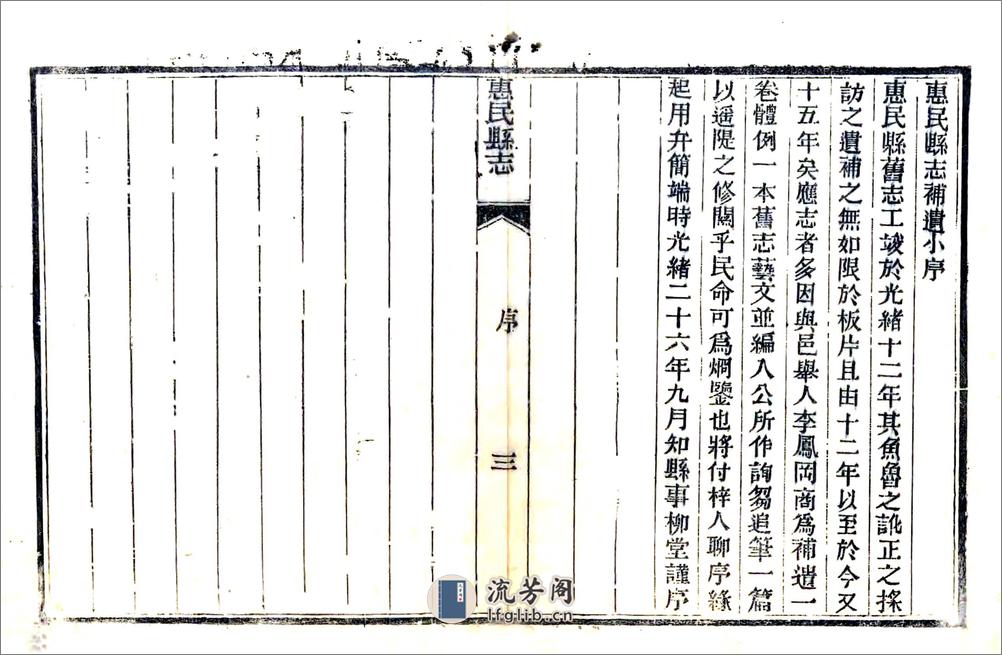 惠民縣志補遺小序
惠民縣舊志工竣於光緒十二年其魚魯之訛正之採
訪之遺補之無如限於板片且由十二年以至於今又
十五年矣應志者多因與邑舉人李鳳岡商爲補遺一
卷體例一本舊志藝文並編入公所作詢芻追筆一篇
以遥隄之修關乎民命可爲烱鑒也將付梓人聊序緣
起用弁簡端時光緒二十六年九月知縣事柳堂謹序
惠民縣志
序
三
流芳阁
lfglib.cn